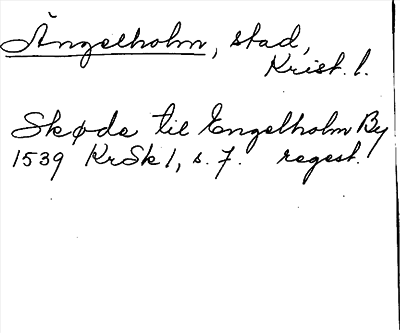 Ängelholm, stad,
Krist. l.
Skøde til Engelholm By
1539 KrSk 1, s. 7. regest.